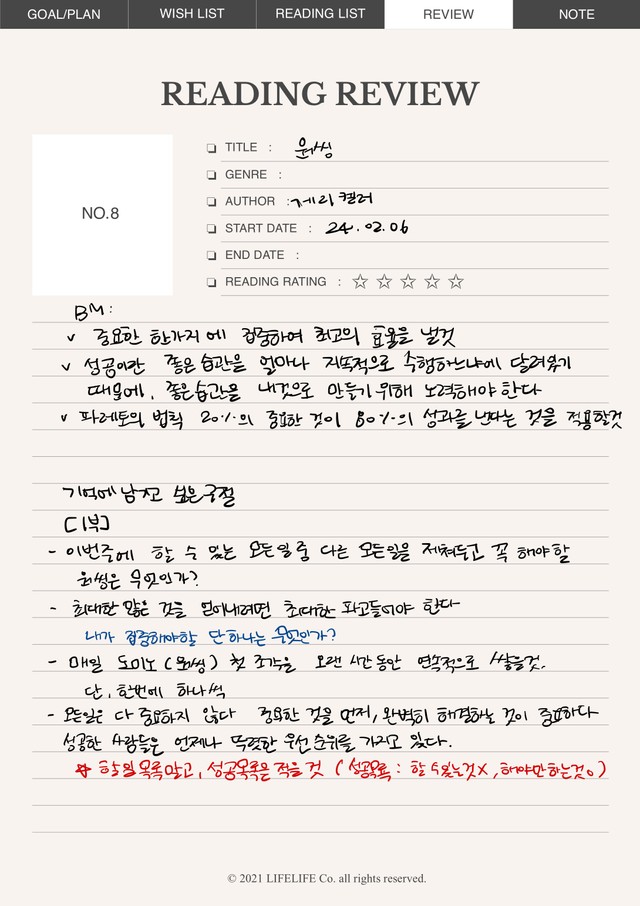 GOAL/PLAN WISH LIST READING LIST REVIEW NOTE
READING REVIEW
NO.8
TITLE : 원씽
GENRE :
AUTHOR : 게리 켈러
START DATE : 24.02.06
END DATE :
READING RATING : ☆ ☆ ☆ ☆ ☆
BM:
v 중요한 한가지에 집중하여 최고의 효율을 낼것
v 성공이란 좋은 습관을 얼마나 지속적으로 수행하느냐에 달려있기
때문에, 좋은습관을 내것으로 만들기 위해 노력해야 한다
v 파레토의 법칙 20%의 중요한 것이 80%의 성과를 낸다는 것을 적용할것
기억에 남기고 싶은 구절
[1부]
- 이번주에 할 수 있는 모든일 중 다른 모든일을 제쳐두고 꼭 해야 할
원씽은 무엇인가?
- 최대한 많은 것을 얻어내려면 최대한 파고들어야 한다
내가 집중해야할 단 하나는 무엇인가?
- 매일 도미노 (원씽) 첫 조각을 오랜 시간동안 연속적으로 쌓을것.
단, 한번에 하나씩
- 모든일은 다 중요하지 않다 중요한 것을 먼저, 완벽히 해결하는 것이 중요하다
성공한 사람들은 언제나 뚜렷한 우선순위를 가지고 있다.
☆ 할일 목록 말고, 성공목록을 적을 것 (성공목록 : 할 수 있는 것 X, 해야만 하는 것 O)
© 2021 LIFELIFE Co. all rights reserved.